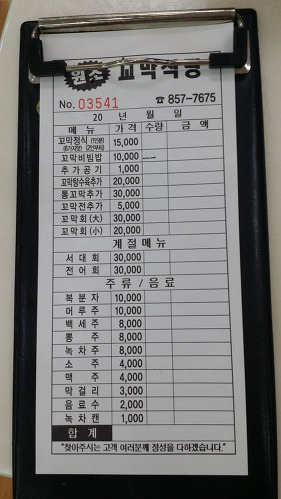 원조 꼬막식당
No. 03541 ☎ 857-7675
20 년 월 일
메뉴 가격 수량 금액
꼬막정식 (1인분) 15,000
꼬막비빔밥 10,000
추가공기 1,000
꼬막탕수육추가 20,000
통꼬막추가 30,000
꼬막전추가 5,000
꼬막회 (大) 30,000
꼬막회 (小) 20,000
계절메뉴
서대회 30,000
전어회 30,000
주류/음료
복분자 10,000
머루주 10,000
백세주 8,000
뽕주 8,000
녹차주 8,000
소주 4,000
맥주 4,000
막걸리 3,000
음료수 2,000
녹차캔 1,000
합계
"찾아주시는 고객 여러분께 정성을 다하겠습니다."